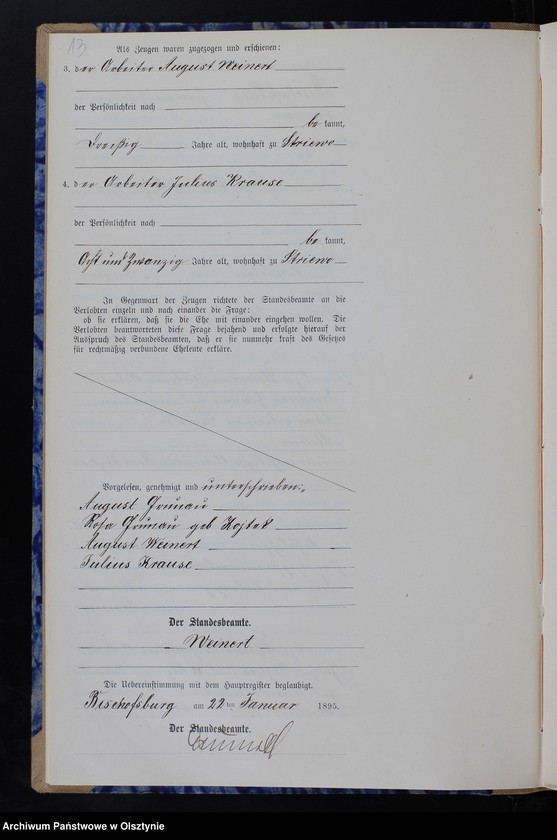 13
Als Zeugen waren zugezogen und erschienen:
3. der Arbeiter August Weinert
der Persönlichkeit nach
be kannt,
Dreißig Jahre alt, wohnhaft zu Striewo
4. der Arbeiter Julius Krause
der Persönlichkeit nach
be kannt,
Acht und Zwanzig Jahre alt, wohnhaft zu Striewo
In Gegenwart der Zeugen richtete der Standesbeamte an die
Verlobten einzeln und nach einander die Frage:
ob sie erklären, daß sie die Ehe mit einander eingehen wollen. Die
Verlobten beantworteten diese Frage bejahend und erfolgte hierauf der
Ausspruch des Standesbeamten, daß er sie nunmehr kraft des Gesetzes
für rechtmäßig verbundene Eheleute erkläre.
Vorgelesen, genehmigt und unterschrieben:
August Grunau
Rosa Grunau geb Hojtek
August Weinert
Julius Krause
Der Standesbeamte.
Weinert
Die Uebereinstimmung mit dem Hauptregister beglaubigt.
Bischofsburg am 22 ten Januar 1895.
Der Standesbeamte.
Archiwum Państwowe w Olsztynie